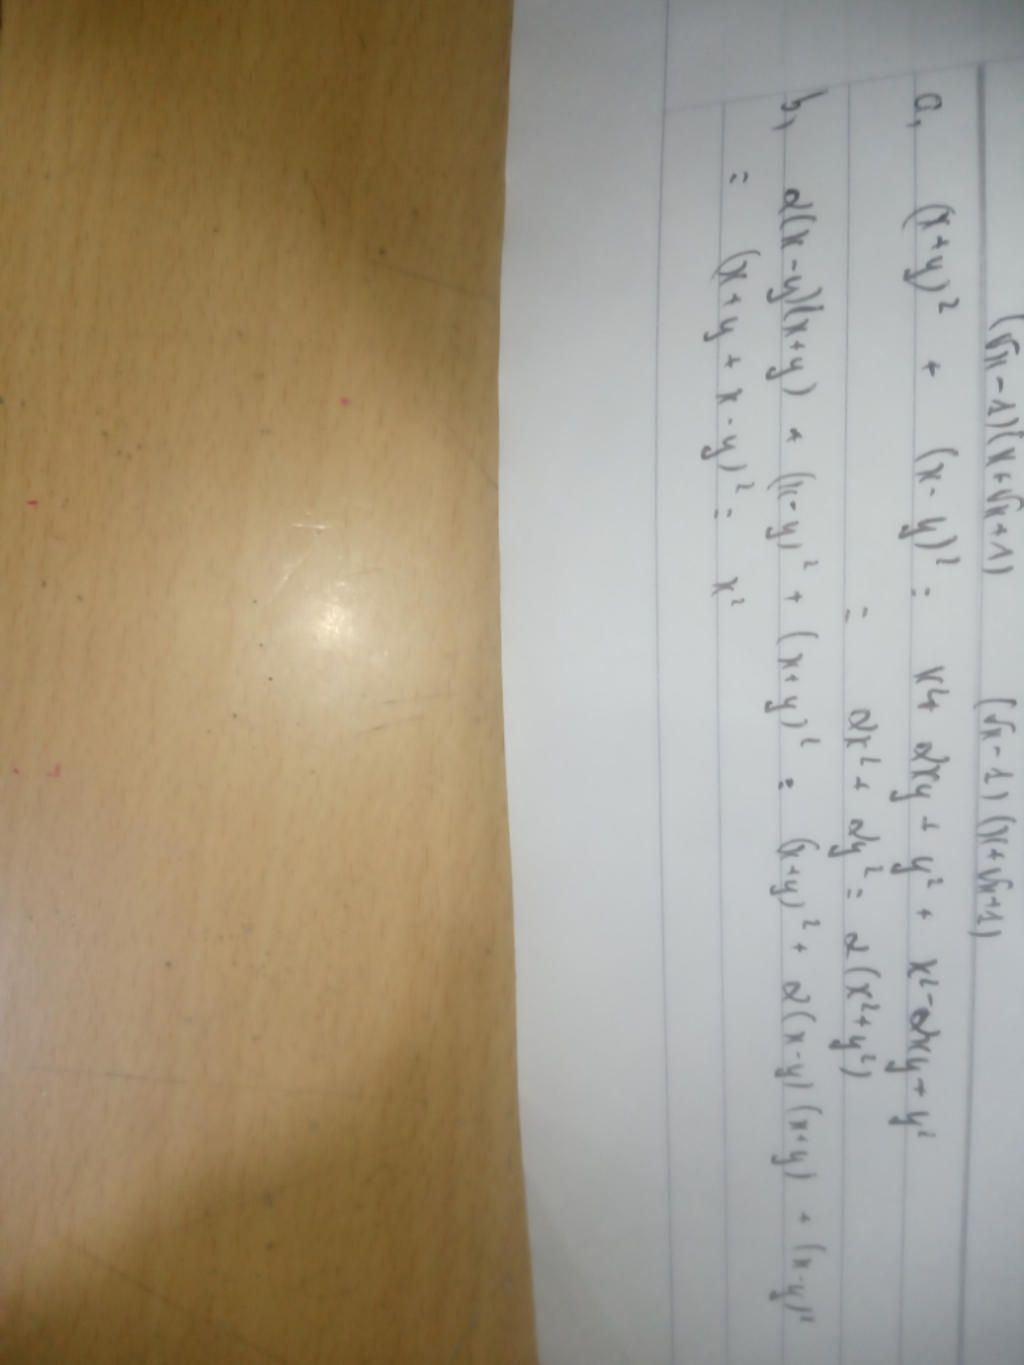 (√x-1)(x+√x+1) (√x-1)(x+√x+1)
a, (x+y)² + (x-y)² = x²+ 2xy + y² + x²-2xy+y²
= 2x²+ 2y² = 2(x²+y²)
b, 2(x-y)(x+y) + (x-y)² + (x+y)² = (x+y)² + 2(x-y)(x+y) + (x-y)²
= (x+y+x-y)² = x²